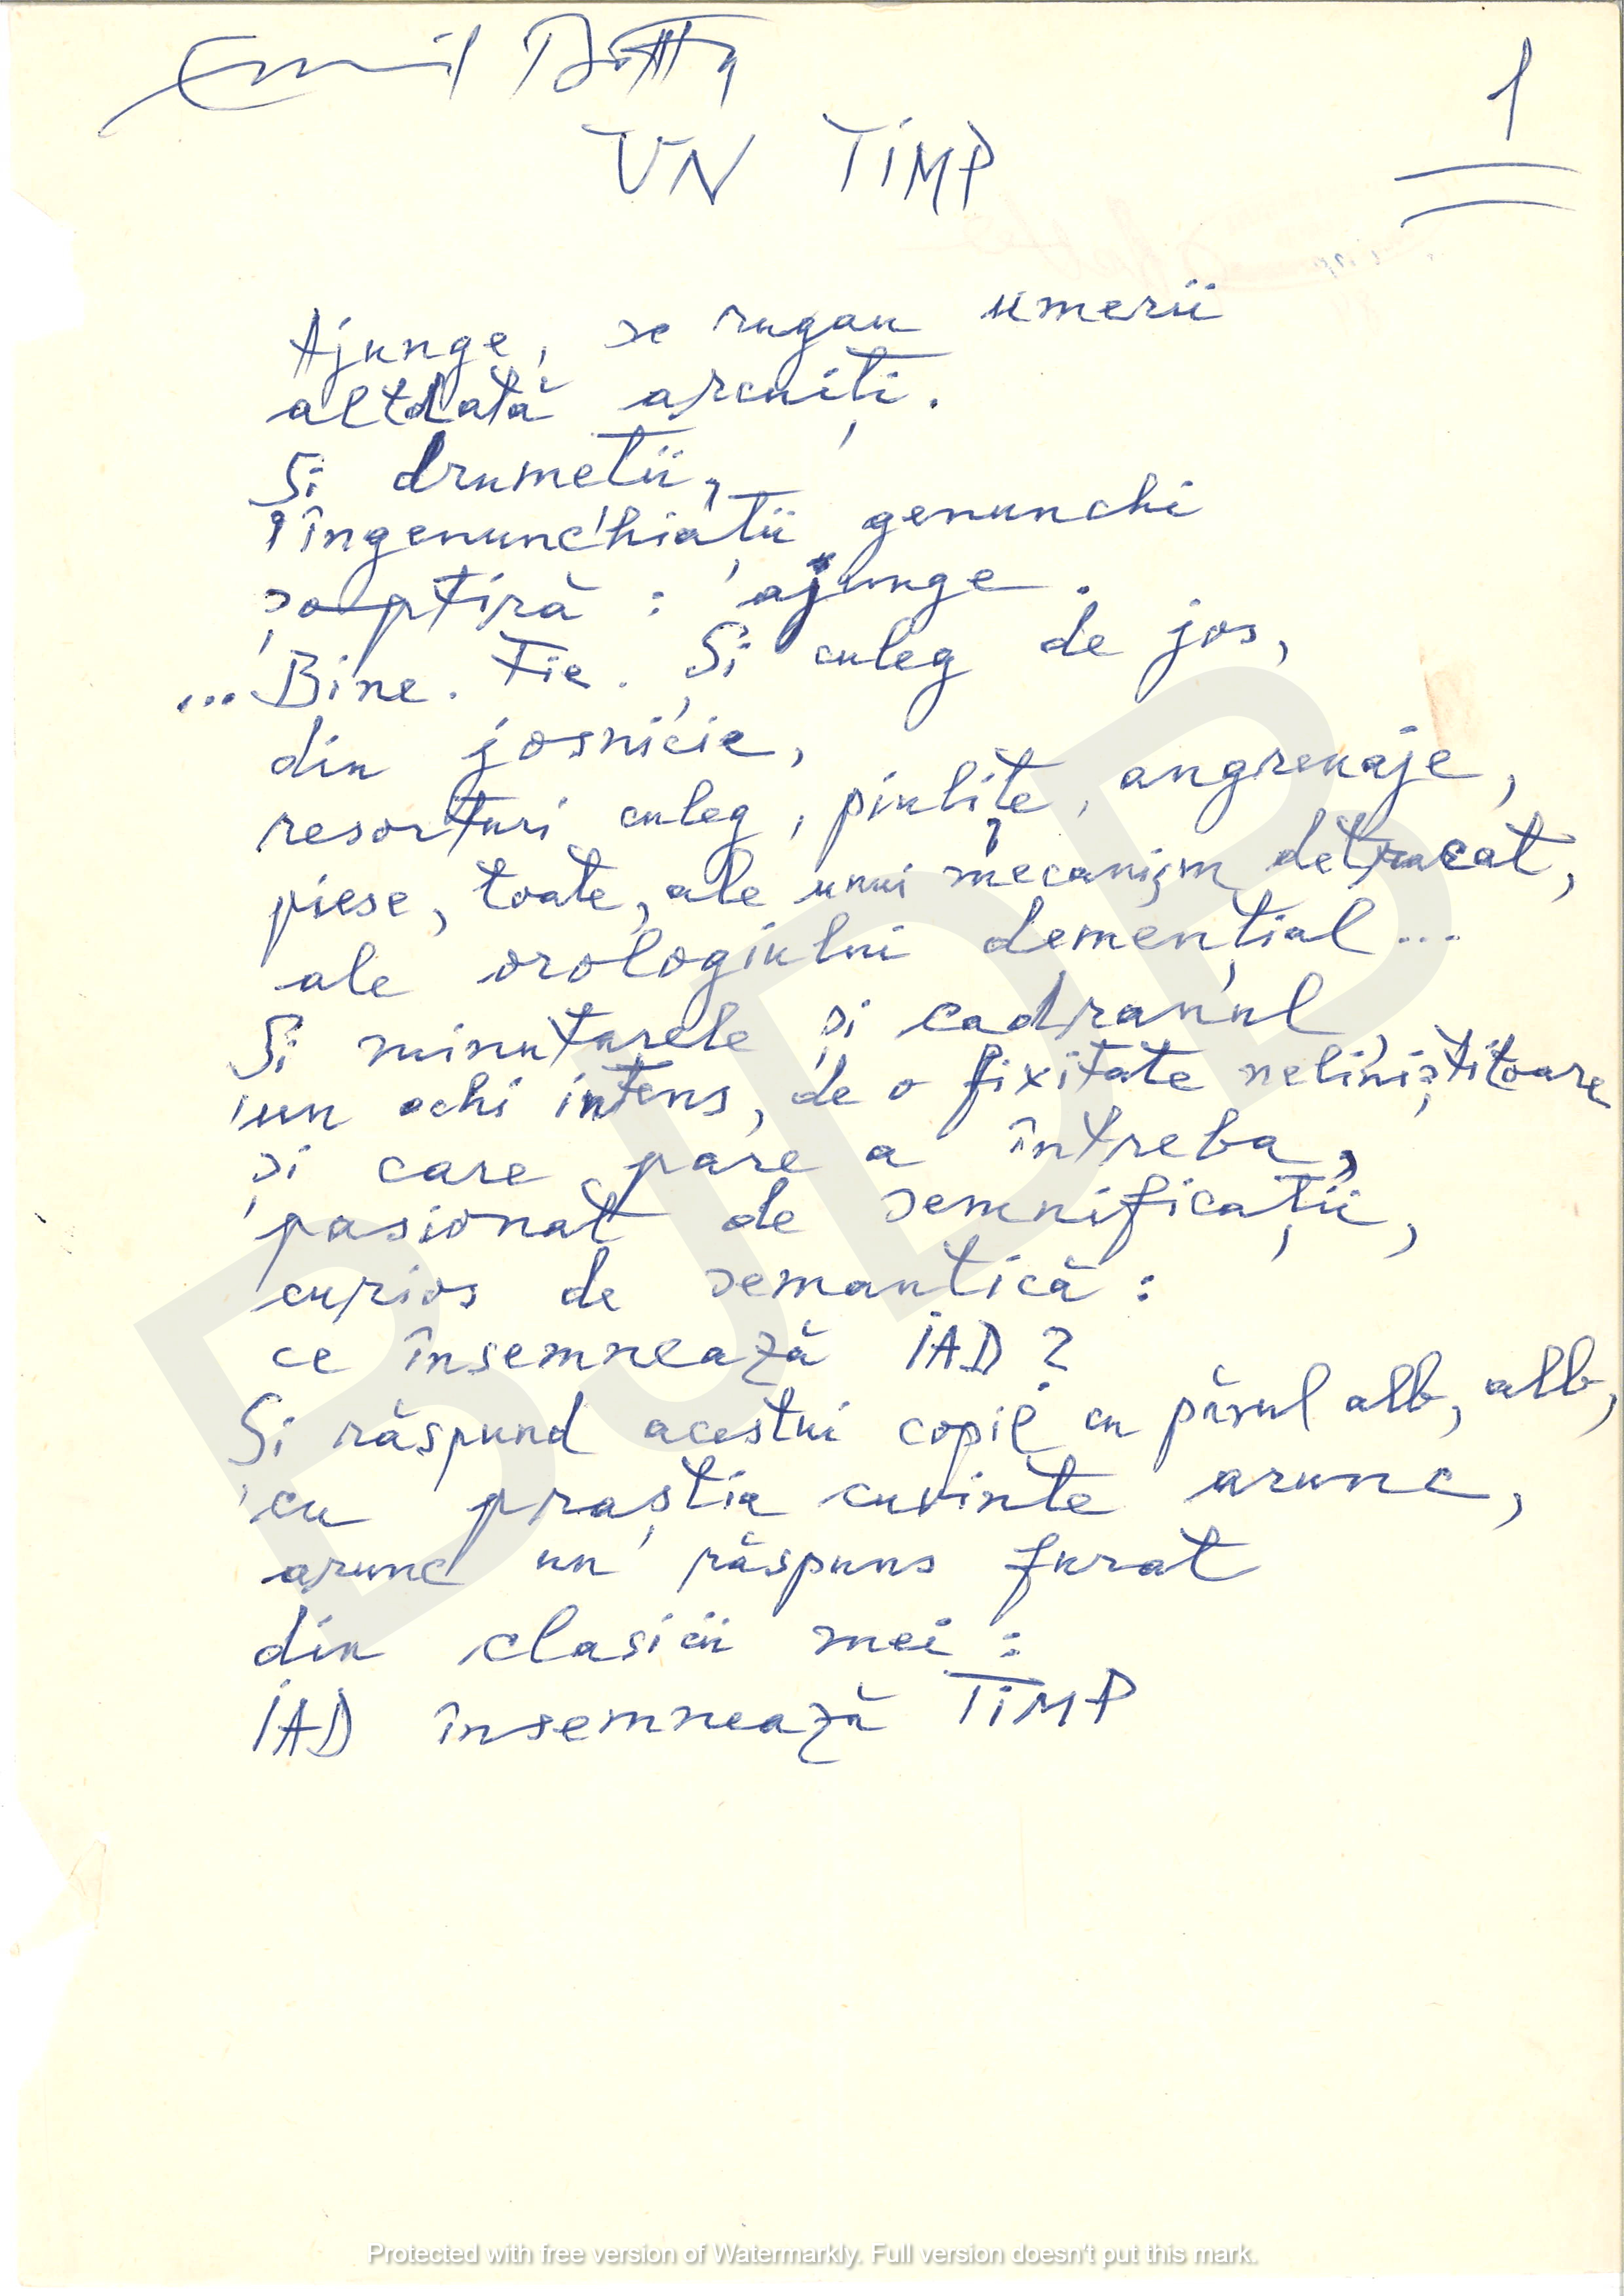 Emil Botta
1
UN TIMP
Ajunge, se rugau umerii
altdată arcuiți.
Și drumeții,
îngenunchiații genunchi
șoptiră: ajunge.
... Bine. Fie. Și culeg de jos,
din josnicie,
resorturi culeg, piulițe, angrenaje,
piese, toate, ale unui mecanism detracat,
ale orologiului demențial...
Și minutarele și cadranul,
un ochi intens, de o fixitate neliniștitoare
și care pare a întreba,
pasionat de semnificații,
curios de semantică:
ce însemnează IAD?
Și răspund acestui copil cu părul alb, alb,
cu praștia cuvinte arunc,
arunc un răspuns furat
din clasicii mei:
IAD însemnează TIMP
BJDB
Protected with free version of Watermarkly. Full version doesn't put this mark.